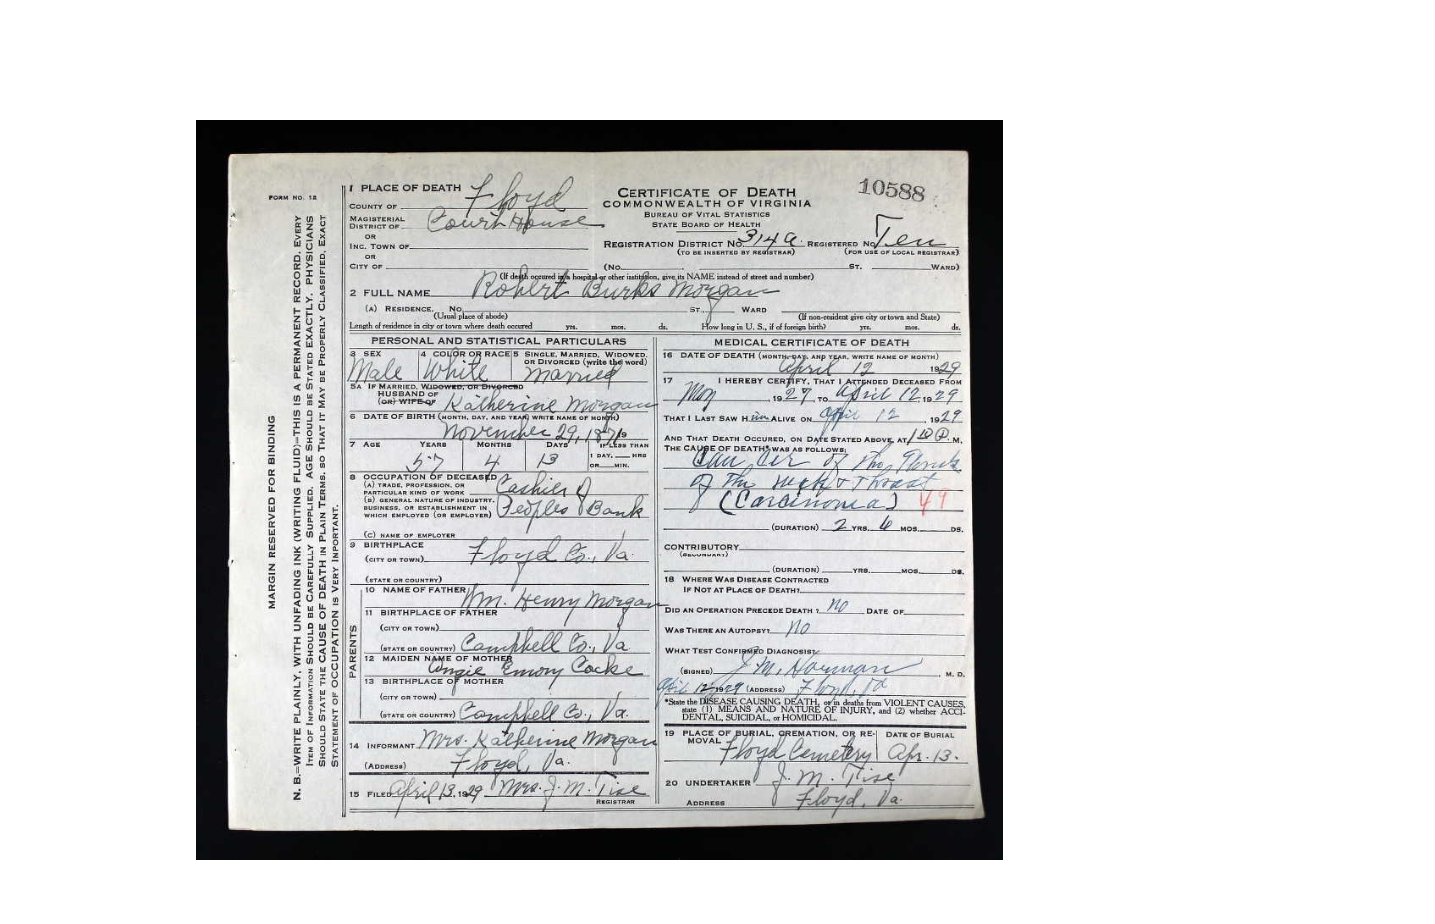 FORM NO. 12
MARGIN RESERVED FOR BINDING
N. B.—WRITE PLAINLY, WITH UNFADING INK (WRITING FLUID)—THIS IS A PERMANENT RECORD. EVERY
ITEM OF INFORMATION SHOULD BE CAREFULLY SUPPLIED. AGE SHOULD BE STATED EXACTLY. PHYSICIANS
SHOULD STATE THE CAUSE OF DEATH IN PLAIN TERMS, SO THAT IT MAY BE PROPERLY CLASSIFIED. EXACT
STATEMENT OF OCCUPATION IS VERY INPORTANT.
1 PLACE OF DEATH
COUNTY OF Floyd
MAGISTERIAL DISTRICT OF Court House
OR
INC. TOWN OF
OR
CITY OF
CERTIFICATE OF DEATH
COMMONWEALTH OF VIRGINIA
BUREAU OF VITAL STATISTICS
STATE BOARD OF HEALTH
10588
REGISTRATION DISTRICT NO. 314a REGISTERED NO. Ten
(TO BE INSERTED BY REGISTRAR) (FOR USE OF LOCAL REGISTRAR)
(No. ST. WARD)
(If death occured in a hospital or other institution, give its NAME instead of street and number)
2 FULL NAME Robert Burks Morgan
(A) RESIDENCE. No. ST. WARD
(Usual place of abode) (If non-resident give city or town and State)
Length of residence in city or town where death occured yrs. mos. ds. How long in U. S., if of foreign birth? yrs. mos. ds.
PERSONAL AND STATISTICAL PARTICULARS
3 SEX Male
4 COLOR OR RACE White
5 SINGLE, MARRIED, WIDOWED, OR DIVORCED (write the word) Married
5A IF MARRIED, WIDOWED, OR DIVORCED
HUSBAND OF
(OR) WIFE OF Katherine Morgan
6 DATE OF BIRTH (MONTH, DAY, AND YEAR, WRITE NAME OF MONTH)
November 29, 1871
7 AGE YEARS MONTHS DAYS IF LESS THAN
1 DAY, HRS
OR MIN.
57 4 13
8 OCCUPATION OF DECEASED
(A) TRADE, PROFESSION, OR PARTICULAR KIND OF WORK Cashier of
(B) GENERAL NATURE OF INDUSTRY, BUSINESS, OR ESTABLISHMENT IN WHICH EMPLOYED (OR EMPLOYER) Peoples Bank
(C) NAME OF EMPLOYER
9 BIRTHPLACE
(CITY OR TOWN) Floyd Co., Va.
(STATE OR COUNTRY)
PARENTS
10 NAME OF FATHER Wm. Henry Morgan
11 BIRTHPLACE OF FATHER
(CITY OR TOWN)
(STATE OR COUNTRY) Campbell Co., Va
12 MAIDEN NAME OF MOTHER Emory Cocke
13 BIRTHPLACE OF MOTHER
(CITY OR TOWN)
(STATE OR COUNTRY) Campbell Co., Va.
14 INFORMANT Mrs. Katherine Morgan
(ADDRESS) Floyd, Va.
15 FILED April 13, 1929 Mrs. J. M. Tise
REGISTRAR
MEDICAL CERTIFICATE OF DEATH
16 DATE OF DEATH (MONTH, DAY, AND YEAR, WRITE NAME OF MONTH)
April 12 1929
17 I HEREBY CERTIFY, THAT I ATTENDED DECEASED FROM
May 1927 TO April 12 1929
THAT I LAST SAW H im ALIVE ON April 12, 1929
AND THAT DEATH OCCURED, ON DATE STATED ABOVE, AT P. M.
THE CAUSE OF DEATH* WAS AS FOLLOWS:
Cancer of the
of the neck & Throat
(Carcinoma) 49
(DURATION) 2 YRS. 6 MOS. DS.
CONTRIBUTORY
(SECONDARY)
(DURATION) YRS. MOS. DS.
18 WHERE WAS DISEASE CONTRACTED
IF NOT AT PLACE OF DEATH?
DID AN OPERATION PRECEDE DEATH? no DATE OF
WAS THERE AN AUTOPSY? no
WHAT TEST CONFIRMED DIAGNOSIS?
(SIGNED) J. M. Harman, M. D.
April 12 1929 (ADDRESS) Floyd, Va
*State the DISEASE CAUSING DEATH, or in deaths from VIOLENT CAUSES,
state (1) MEANS AND NATURE OF INJURY, and (2) whether ACCI-
DENTAL, SUICIDAL, or HOMICIDAL.
19 PLACE OF BURIAL, CREMATION, OR RE-
MOVAL Floyd Cemetery
DATE OF BURIAL Apr. 13.
20 UNDERTAKER J. M. Tise
ADDRESS Floyd, Va.